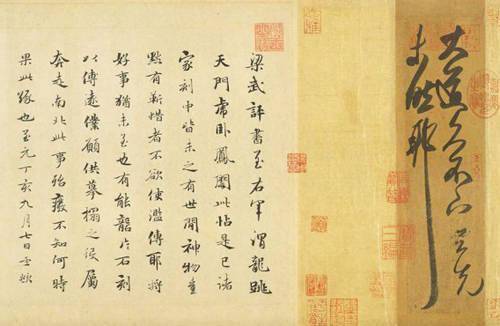 大道久不下与先
未然耶
梁武評書至右軍謂龍跳
天門虎卧鳳闕此帖是已諸
家刻中皆未之有世間神物豈
默有靳惜者不欲使濫傳耶將
好事猶未至也有能礱片石刻
以傳遠僕願供摹搨之役屬
奔走南北此事殆癈不知何時
果此緣也至元丁亥九月七日